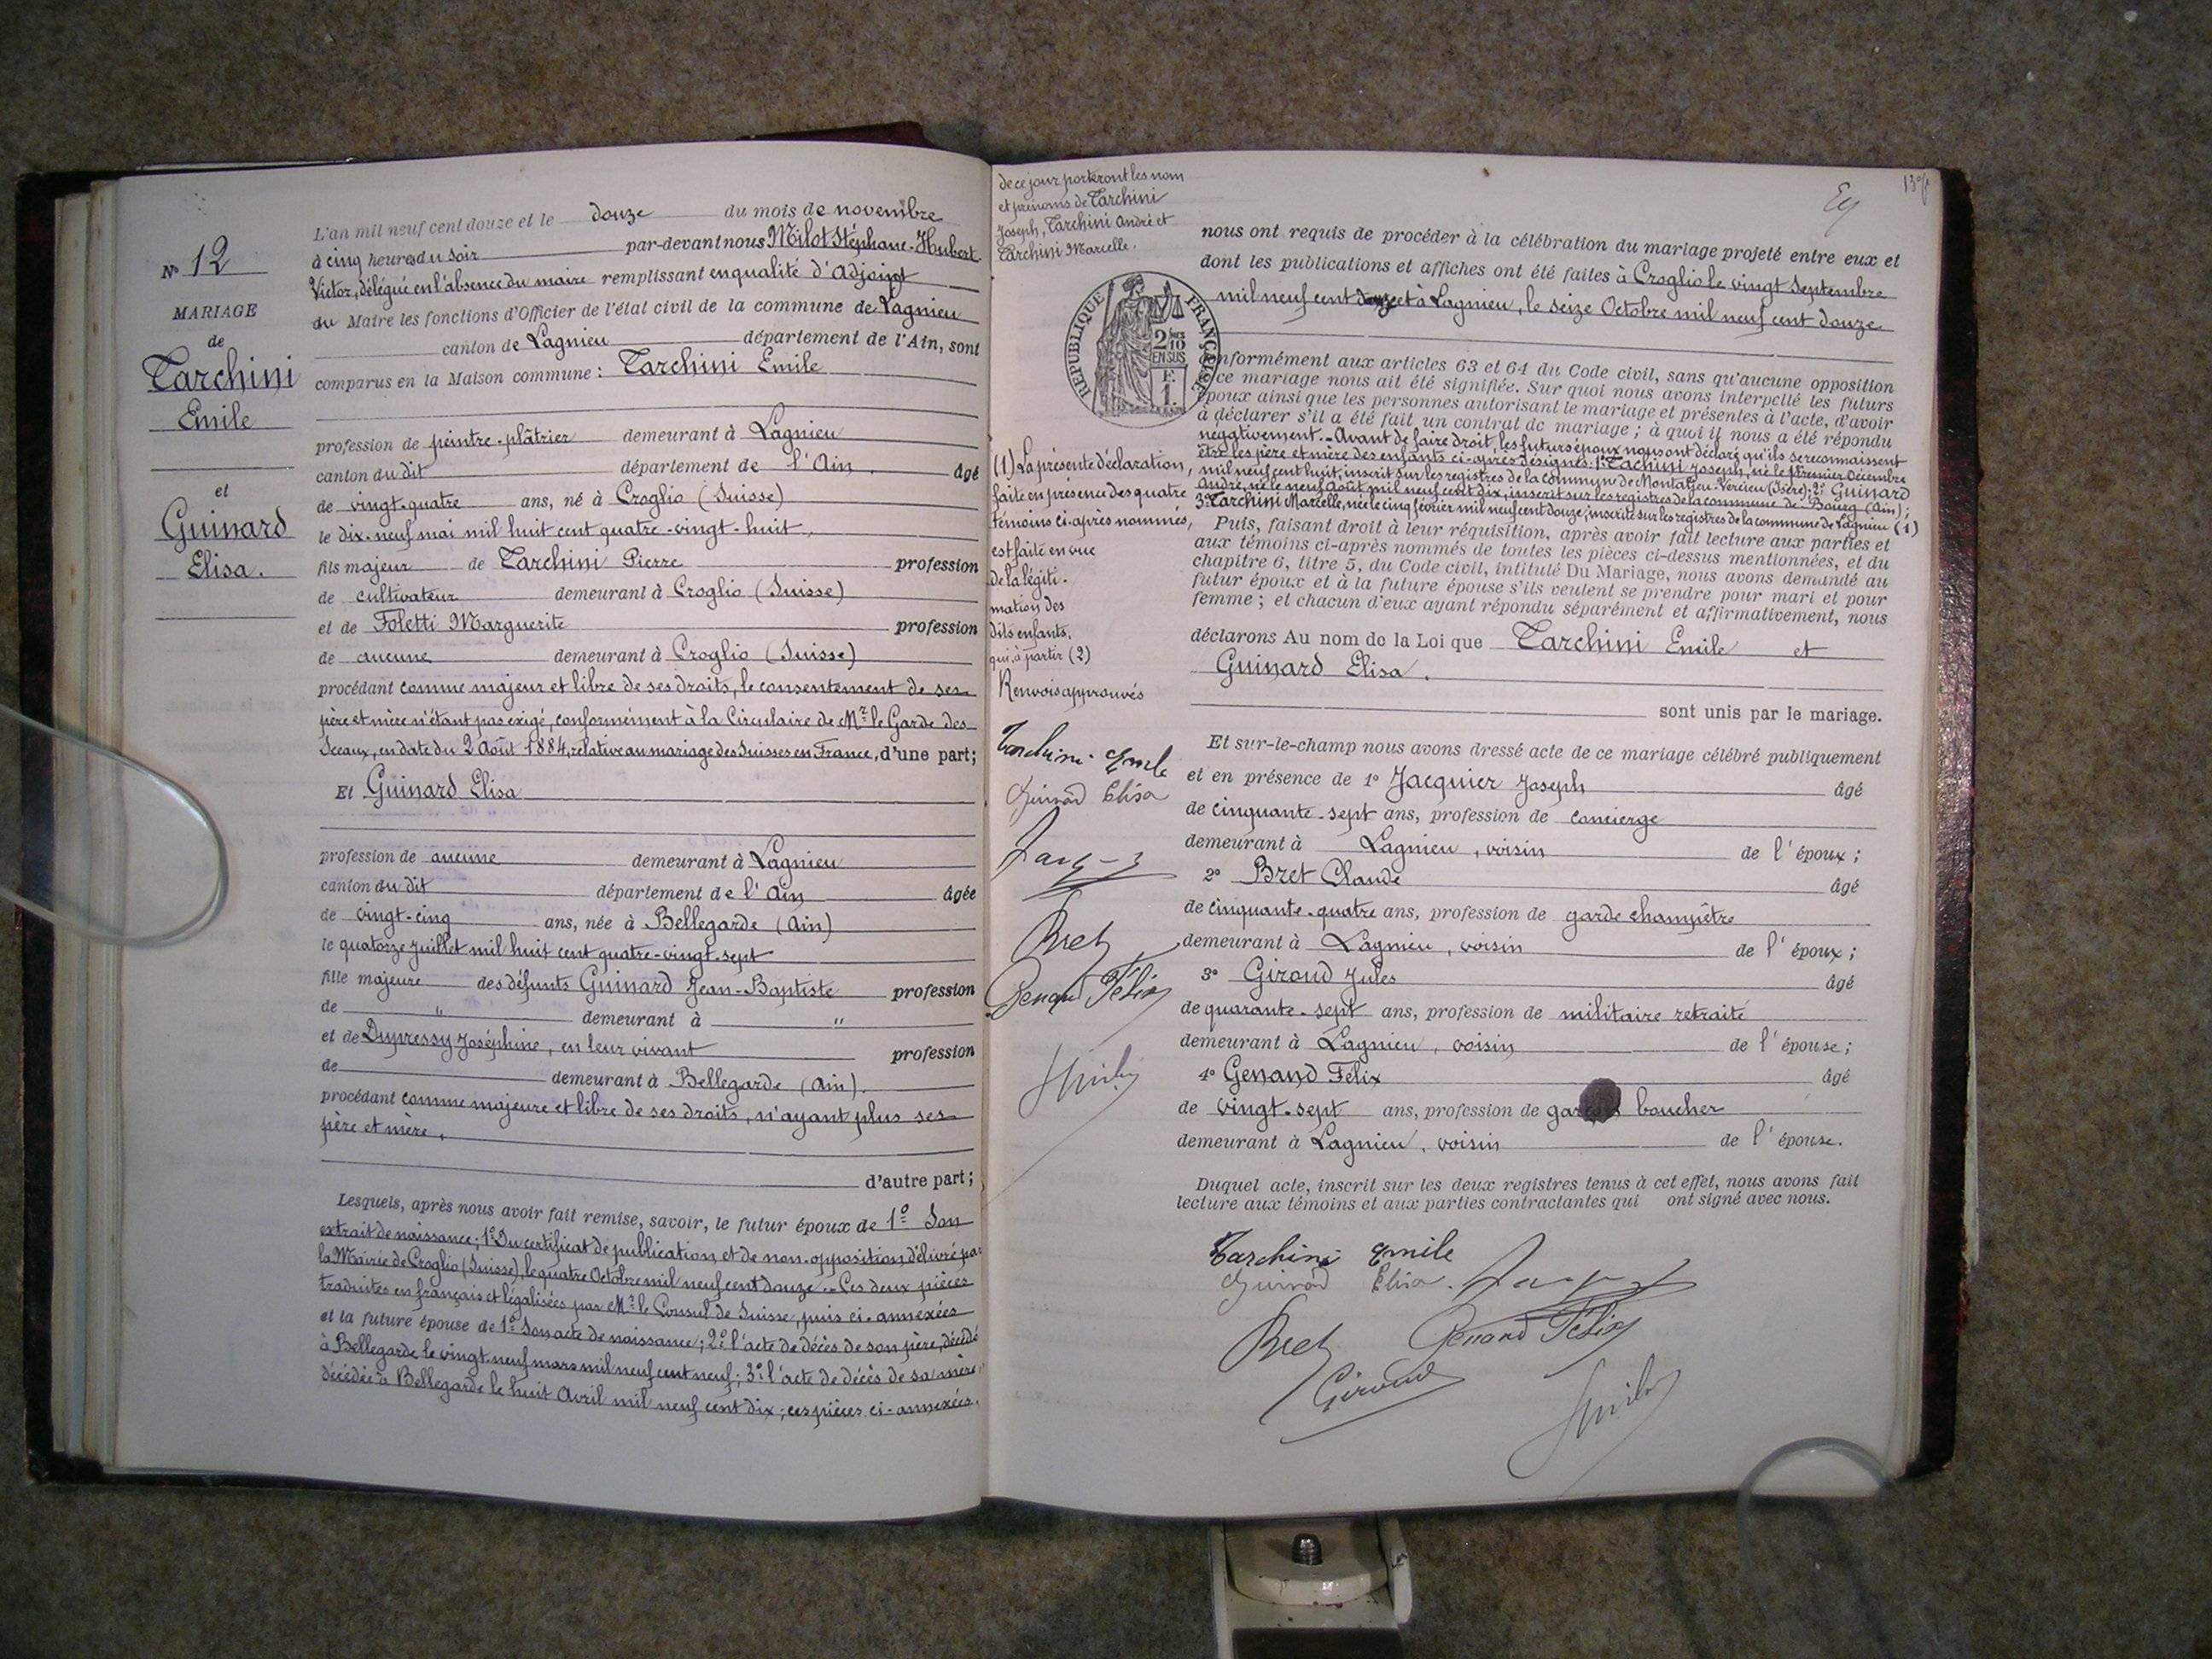 N° 12
MARIAGE
de
Tarchini
Emile
et
Guinard
Elisa.
L'an mil neuf cent douze et le douze du mois de novembre
à cinq heures du soir par-devant nous Milot Stéphane-Hubert-
Victor, délégué en l'absence du maire remplissant en qualité d'Adjoint
du Maire les fonctions d'Officier de l'état civil de la commune de Lagnieu
canton de Lagnieu département de l'Ain, sont
comparus en la Maison commune : Tarchini Emile
profession de peintre-plâtrier demeurant à Lagnieu
canton du dit département de l'Ain. âgé
de vingt-quatre ans, né à Croglio (Suisse)
le dix-neuf mai mil huit cent quatre-vingt-huit,
fils majeur de Tarchini Pierre profession
de cultivateur demeurant à Croglio (Suisse)
et de Foletti Marguerite profession
de aucune demeurant à Croglio (Suisse)
procédant comme majeur et libre de ses droits, le consentement de ses
père et mère n'étant pas exigé, conformément à la Circulaire de Mr. le Garde des
Sceaux, en date du 2 Août 1884, relative au mariage des Suisses en France, d'une part;
Et Guinard Elisa
profession de aucune demeurant à Lagnieu
canton du dit département de l'Ain âgée
de vingt-cinq ans, née à Bellegarde (Ain)
le quatorze juillet mil huit cent quatre-vingt-sept
fille majeure des défunts Guinard Jean-Baptiste profession
de " demeurant à "
et de Dupressy Joséphine, en leur vivant profession
de demeurant à Bellegarde (Ain).
procédant comme majeure et libre de ses droits, n'ayant plus ses
père et mère.
d'autre part;
Lesquels, après nous avoir fait remise, savoir, le futur époux de 1° Son
extrait de naissance; 1° Du certificat de publication et de non-opposition délivré par
la Mairie de Croglio (Suisse), le quatre Octobre mil neuf cent douze.- Ces deux pièces
traduites en français et légalisées par Mr. le Consul de Suisse, puis ci-annexées
et la future épouse de 1° Son acte de naissance; 2° l'acte de décès de son père, décédé
à Bellegarde le vingt-neuf mars mil neuf cent neuf; 3° l'acte de décès de sa mère,
décédée à Bellegarde le huit Avril mil neuf cent dix; ces pièces ci-annexées.
de ce jour porteront les nom
et prénoms de Tarchini
Joseph, Tarchini André et
Tarchini Marcelle.
REPUBLIQUE FRANÇAISE
2 10
EN SUS
F.
1.
(1) La présente déclaration,
faite en présence des quatre
témoins ci-après nommés,
est faite en vue
de la légiti-
mation des
dits enfants,
qui, à partir (2)
Renvois approuvés
Tarchini Emile
Guinard Elisa
Bret
Genand Félix
nous ont requis de procéder à la célébration du mariage projeté entre eux et
dont les publications et affiches ont été faites à Croglio le vingt Septembre
mil neuf cent douze et à Lagnieu, le seize Octobre mil neuf cent douze
conformément aux articles 63 et 64 du Code civil, sans qu'aucune opposition
à ce mariage nous ait été signifiée. Sur quoi nous avons interpellé les futurs
époux ainsi que les personnes autorisant le mariage et présentes à l'acte, d'avoir
à déclarer s'il a été fait un contrat de mariage ; à quoi il nous a été répondu
négativement.- Avant de faire droit, les futurs époux nous ont déclaré qu'ils se reconnaissent
être les père et mère des enfants ci-après désignés: 1° Tachini Joseph, né le premier Décembre
mil neuf cent huit, inscrit sur les registres de la commune de Montalieu-Vercieu (Isère); 2° Guinard
André, né le neuf Août mil neuf cent dix, inscrit sur les registres de la commune de Bourg (Ain);
3° Tarchini Marcelle, née le cinq février mil neuf cent douze, inscrite sur les registres de la commune de Lagnieu (1)
Puis, faisant droit à leur réquisition, après avoir fait lecture aux parties et
aux témoins ci-après nommés de toutes les pièces ci-dessus mentionnées, et du
chapitre 6, titre 5, du Code civil, intitulé Du Mariage, nous avons demandé au
futur époux et à la future épouse s'ils veulent se prendre pour mari et pour
femme ; et chacun d'eux ayant répondu séparément et affirmativement, nous
déclarons Au nom de la Loi que Tarchini Emile et
Guinard Elisa.
sont unis par le mariage.
Et sur-le-champ nous avons dressé acte de ce mariage célébré publiquement
et en présence de 1° Jacquier Joseph âgé
de cinquante-sept ans, profession de concierge
demeurant à Lagnieu, voisin de l'époux ;
2° Bret Claude âgé
de cinquante-quatre ans, profession de garde champêtre
demeurant à Lagnieu, voisin de l'époux ;
3° Giroud Jules âgé
de quarante-sept ans, profession de militaire retraité
demeurant à Lagnieu, voisin de l'épouse ;
4° Genand Félix âgé
de vingt-sept ans, profession de garçon boucher
demeurant à Lagnieu, voisin de l'épouse.
Duquel acte, inscrit sur les deux registres tenus à cet effet, nous avons fait
lecture aux témoins et aux parties contractantes qui ont signé avec nous.
Tarchini Emile
Guinard Elisa.
Bret Genand Félix
Giroud